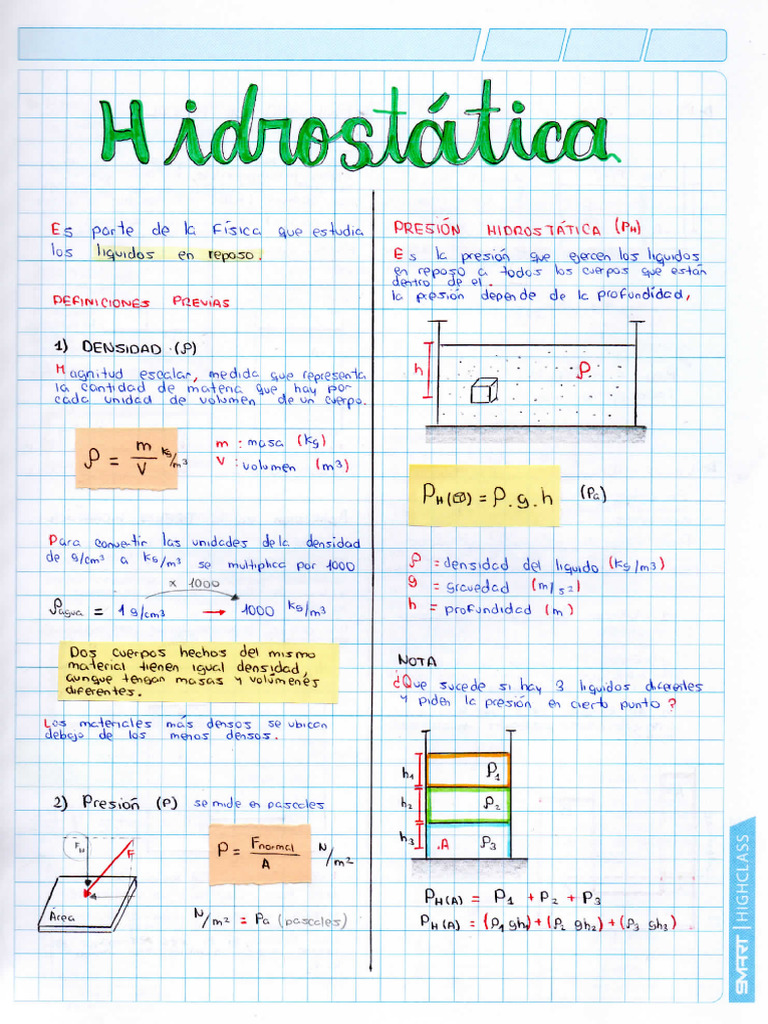 Hidrostática
Es parte de la Física que estudia
los líquidos en reposo.
DEFINICIONES PREVIAS
1) DENSIDAD (ρ)
Magnitud escalar, medida que representa
la cantidad de materia que hay por
cada unidad de volumen de un cuerpo.
ρ = m/V kg/m³
m : masa (kg)
V : volumen (m³)
Para convertir las unidades de la densidad
de g/cm³ a kg/m³ se multiplica por 1000
x 1000
ρagua = 1 g/cm³ → 1000 kg/m³
Dos cuerpos hechos del mismo
material tienen igual densidad,
aunque tengan masas y volúmenes
diferentes.
Los materiales más densos se ubican
debajo de los menos densos.
2) Presión (P) se mide en pascales
F
Área
P = Fnormal/A N/m²
N/m² = Pa (pascales)
PRESIÓN HIDROSTÁTICA (PH)
Es la presión que ejercen los líquidos
en reposo a todos los cuerpos que están
dentro de el.
la presión depende de la profundidad,
h
ρ
PH() = ρ.g.h (Pa)
ρ = densidad del líquido (kg/m³)
g = gravedad (m/s²)
h = profundidad (m)
NOTA
¿Que sucede si hay 3 líquidos diferentes
y piden la presión en cierto punto?
h1 ρ1
h2 ρ2
h3 .A ρ3
PH(A) = P1 + P2 + P3
PH(A) = (ρ1 gh1) + (ρ2 gh2) + (ρ3 gh3)
SMART | HIGHCLASS